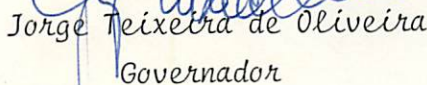 Jorge Teixeira de Oliveira
Governador